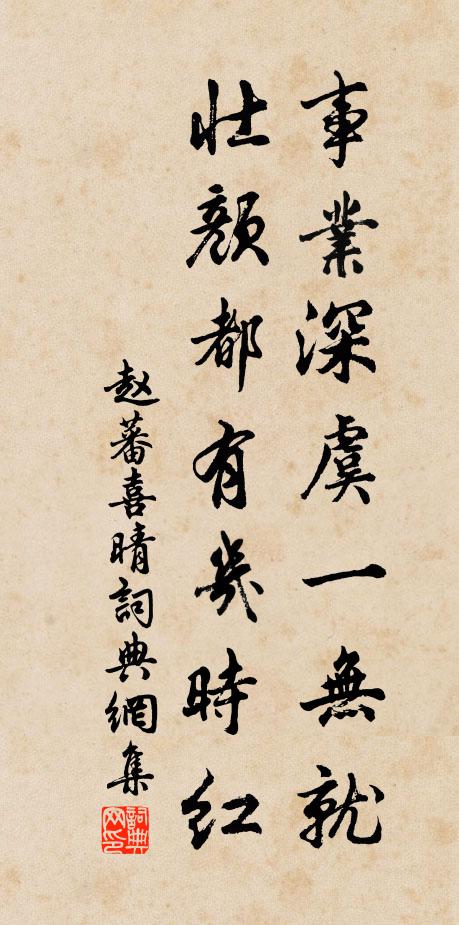 事業深虞一無就
壯顏都有幾時紅
赵蕃喜晴詞典網集
詞典网印